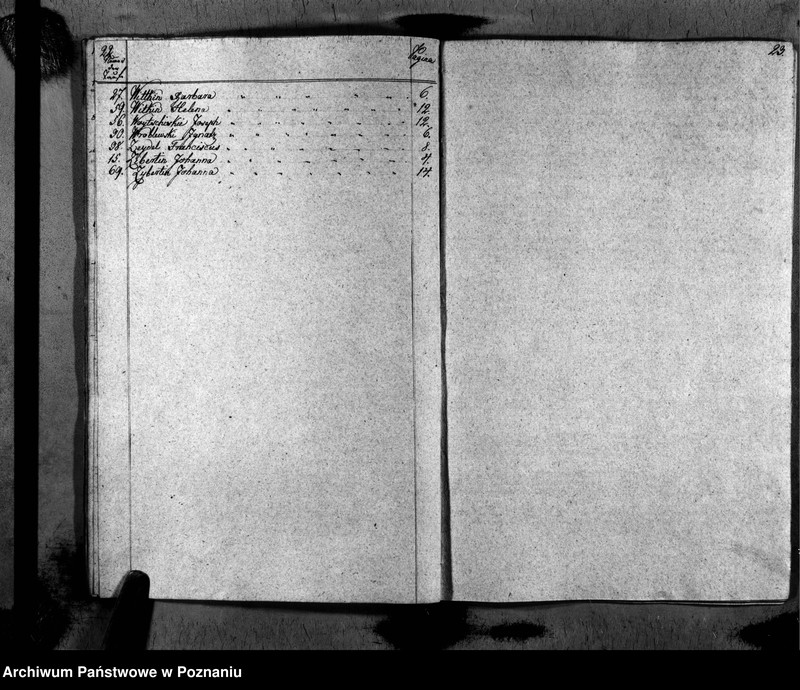 22.
Pagina
27. Witthin Barbara " " " " " " 6.
59. Witkin Helena " " " " " " 12.
56. Woytschoskie Joseph " " " " " " 12.
90. Wroblewski Ignatz " " " " " " 6.
98. Zeydel Franciscus " " " " " " 8.
15. Zibertin Johanna " " " " " " 4.
69. Zybertin Johanna " " " " " " 14.
23.
Archiwum Państwowe w Poznaniu